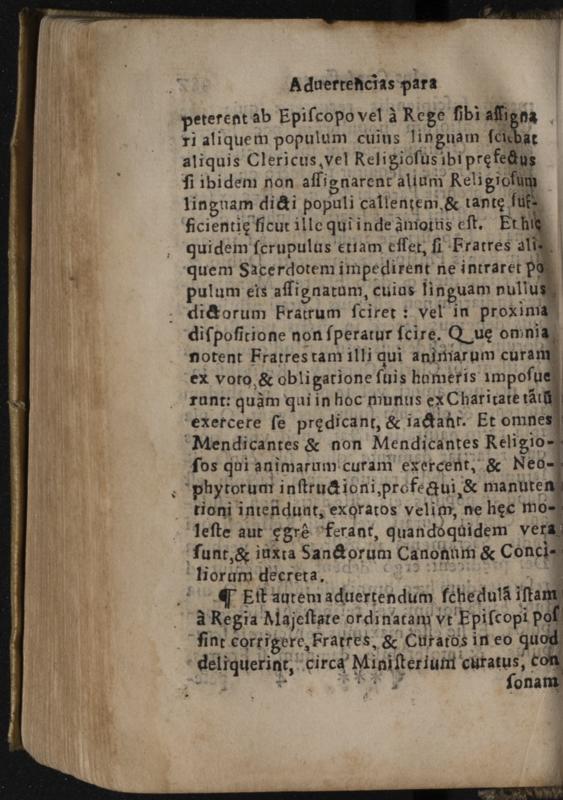 Aduertencias para
peterent ab Epiſcopo vel à Rege ſibi aſſigna
ri aliquem populum cuius linguam ſciebat
aliquis Clericus, vel Religioſus ibi pręfectus
ſi ibidem non aſſignarent alium Religioſum
linguam dicti populi callentem, & tantę ſuf-
ficientię ſicut ille qui inde àmotus eſt. Et hic
quidem ſcrupulus etiam eſſet, ſi Fratres ali-
quem Sacerdotem impedirent ne intraret po
pulum eis aſſignatum, cuius linguam nullus
dictorum Fratrum ſciret : vel in proxima
diſpoſitione non ſperatur ſcire. Quę omnia
notent Fratres tam illi qui animarum curam
ex voto, & obligatione ſuis humeris impoſue
runt: quàm qui in hoc munus ex Charitate tãtũ
exercere ſe prędicant, & iactant. Et omnes
Mendicantes & non Mendicantes Religio-
ſos qui animarum curam exercent, & Neo-
phytorum inſtructioni, profectui, & manuten
tioni intendunt, exoratos velim, ne hęc mo-
leſte aut ęgrê ferant, quandoquidem vera
ſunt, & iuxta Sanctorum Canonum & Conci-
liorum decreta.
¶ Eſt autem aduertendum ſchedulã iſtam
à Regia Majeſtate ordinatam vt Epiſcopi poſ
ſint corrigere, Fratres, & Curatos in eo quod
deliquerint, circa Miniſterium curatus, con
ſonam